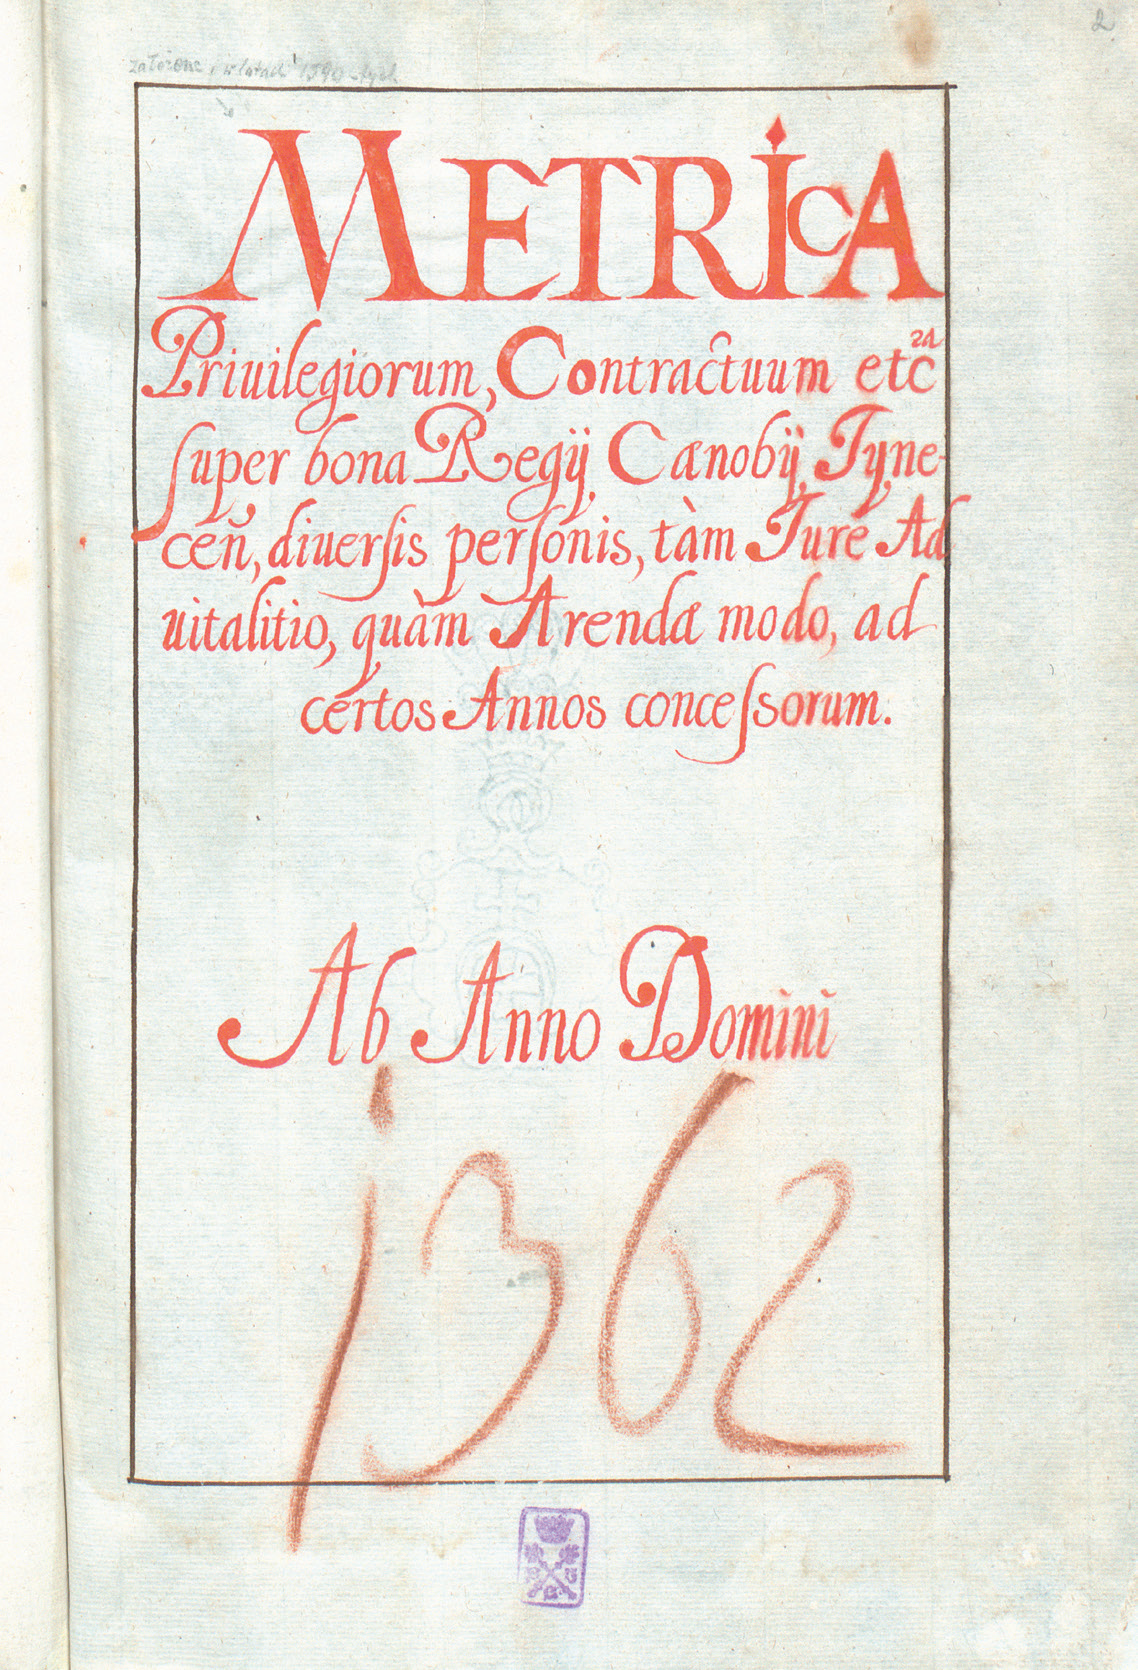 2
założone w latach 1590-tych
METRICA
Priuilegiorum, Contractuum etc̃ za
ſuper bona Regÿ Cænobÿ Tyne-
ceñ, diuerſis perſonis, tàm Iure Ad
uitalitio, quàm Arendæ modo, ad
certos Annos conceſsorum.
Ab Anno Domini
1362